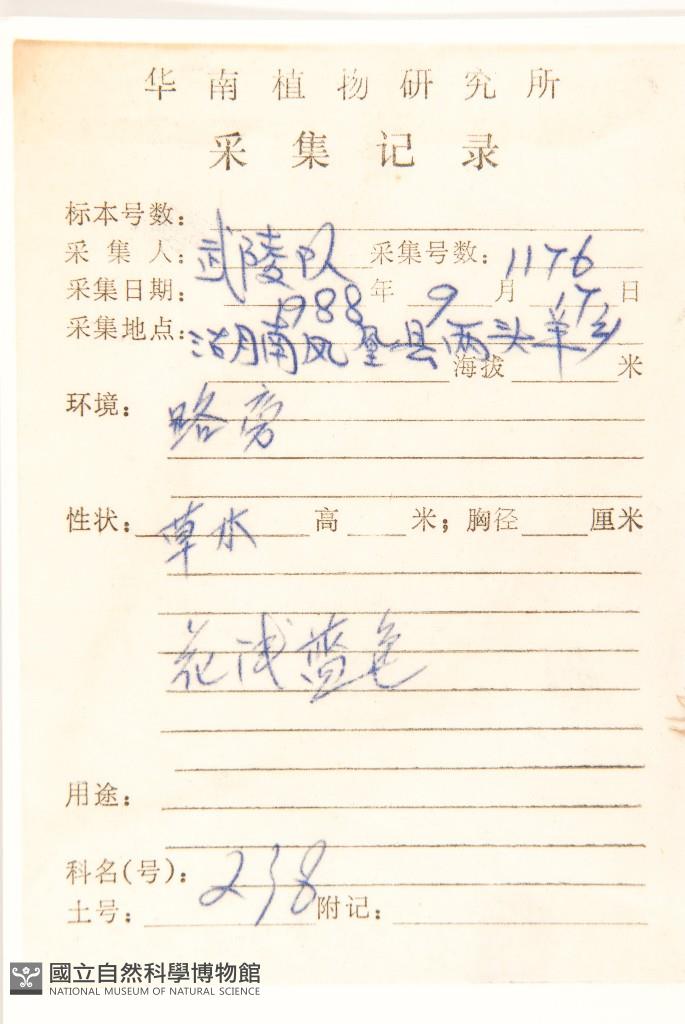 华南植物研究所
采集记录
标本号数:
采集人: 武陵队 采集号数: 1176
采集日期: 1988年 9月 17日
采集地点: 湖南凤凰县两头羊乡
海拔 米
环境: 路旁
性状: 草本 高 米; 胸径 厘米
花浅蓝色
用途:
科名(号): 238
土号: 附记:
國立自然科學博物館
NATIONAL MUSEUM OF NATURAL SCIENCE